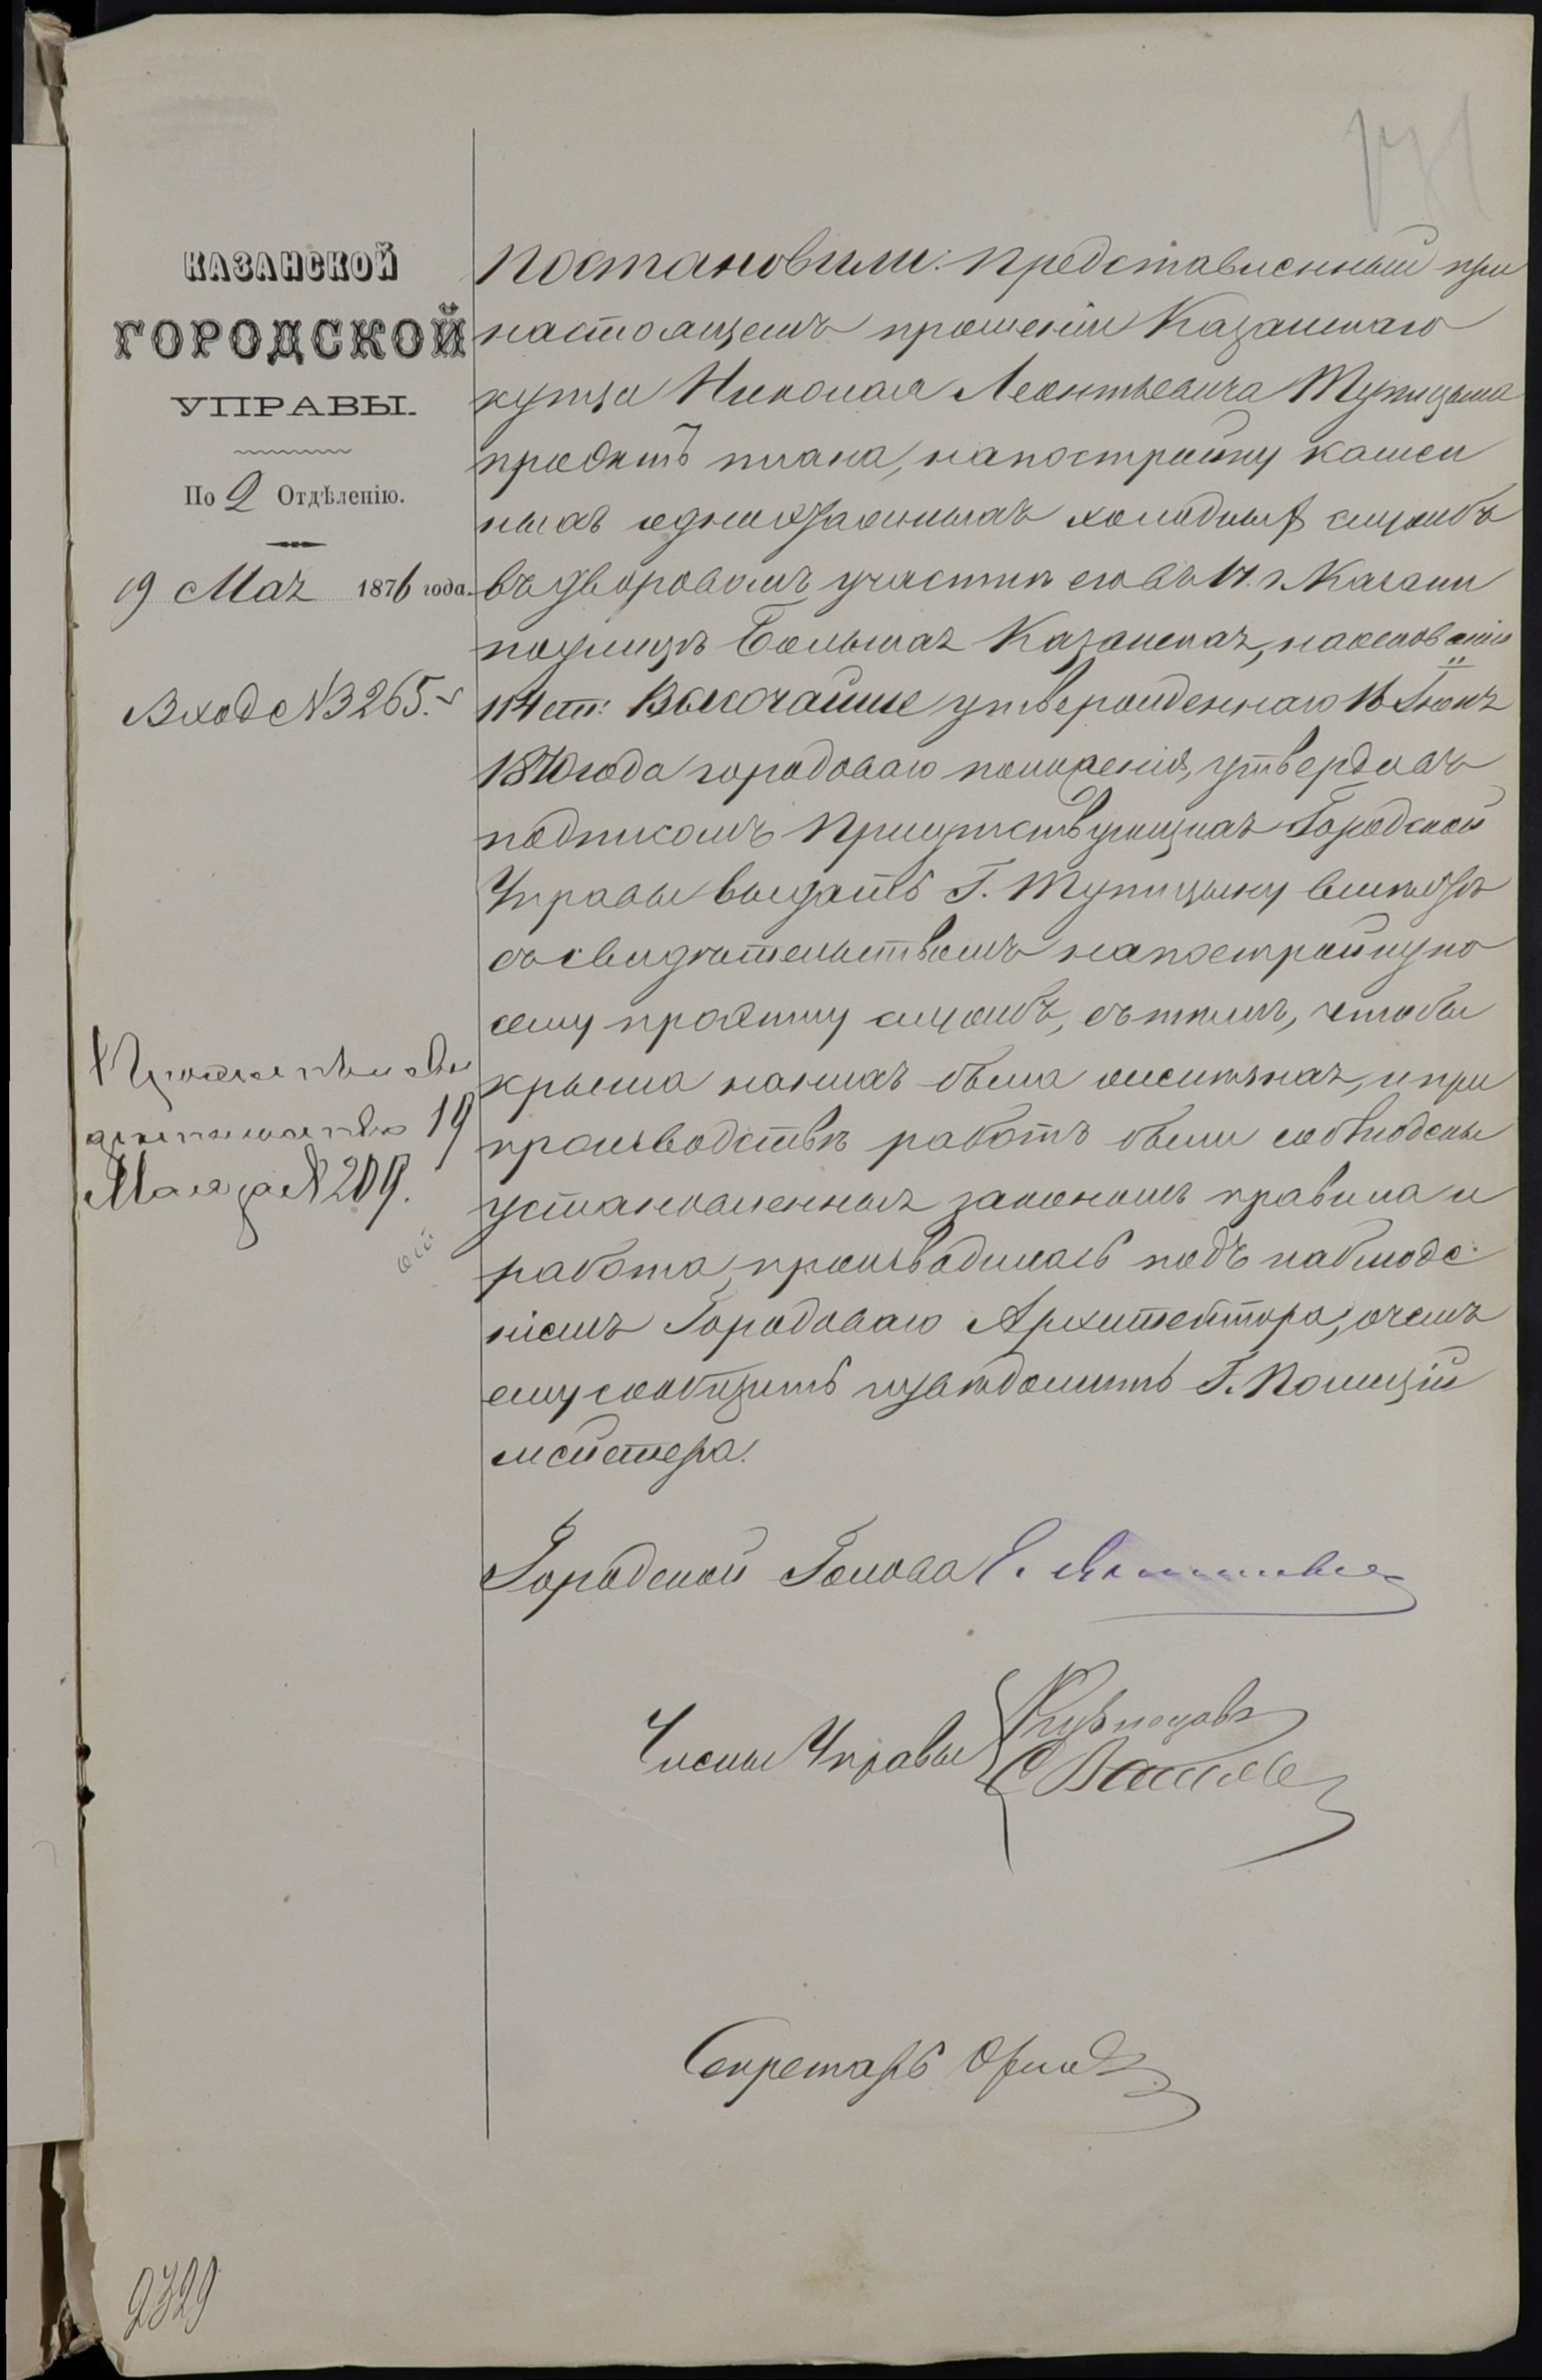 171
КАЗАНСКОЙ
ГОРОДСКОЙ
УПРАВЫ.
По 2 Отдѣленію.
19 Мая 1876 года.
Вход № 3265.
19
Мая за № 209.
Постановили: представленный при
настоящемъ прошеніи Казанскаго
купца Николая Леонтьевича Тупицына
проэктъ плана, на постройку камен
ныхъ одноэтажныхъ холодныхъ службъ
въ дворовомъ участкѣ его въ г. Казани
по улицѣ Большая Казанская, на основаніи
114 ст: Высочайше утвержденнаго 16 Іюня
1870 года городоваго положенія, утвердивъ
подписомъ Присутствующихъ Городской
Управы выдать Г. Тупицыну вмѣстѣ
съ свидѣтельствомъ на постройку по
сему проэкту службъ, съ тѣмъ, чтобы
крыша на нихъ была желѣзная, и при
производствѣ работъ были соблюдены
установленныя закономъ правила и
работа производилась подъ наблюде
ніемъ Городоваго Архитектора, о чемъ
ему сообщить и увѣдомить Г. Полицій
мейстера.
Городской Голова
Члены Управы Кузнецовъ
Секретарь Орлов
2329